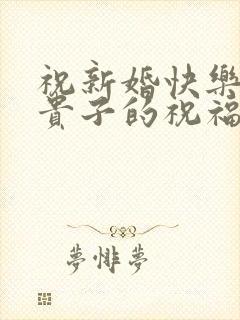 祝新婚快樂
貴子的祝福
夢悱夢